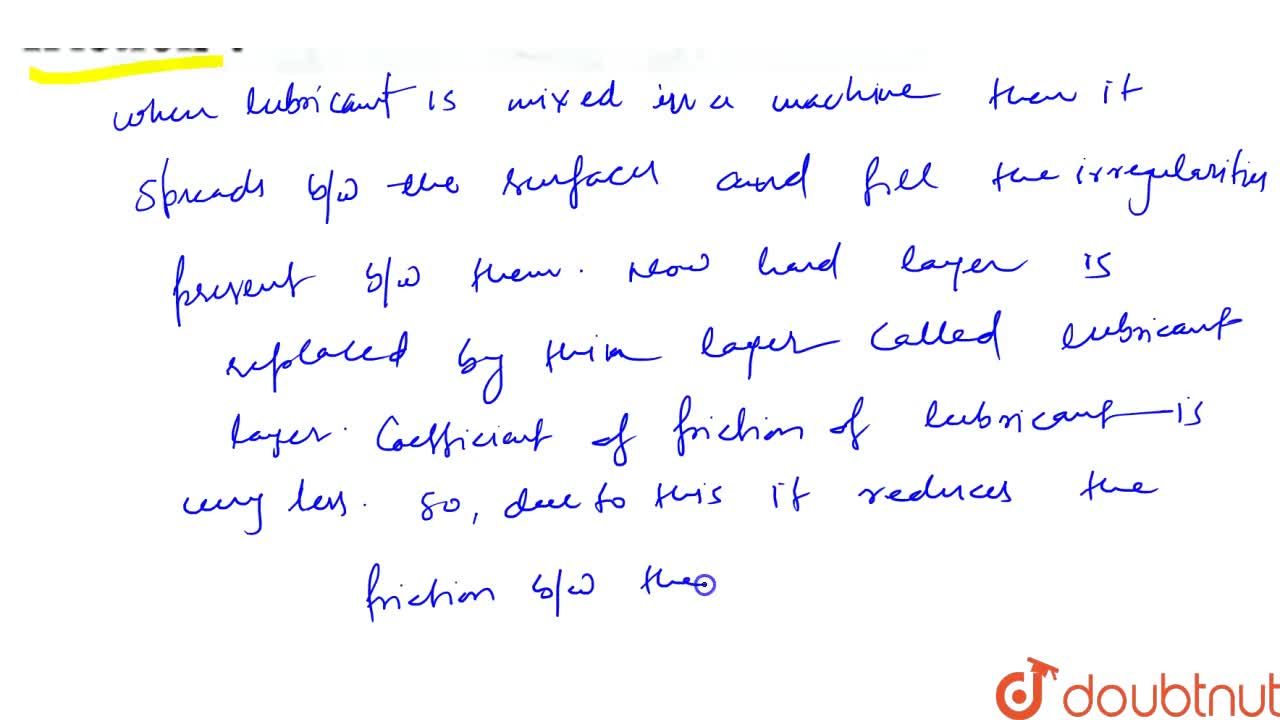 when lubricant is mixed in a machine then it
spreads b/w the surfaces and fill the irregularities
present b/w them. Now hard layer is
replaced by thin layer called lubricant
layer. Coefficient of friction of lubricant is
very less. So, due to this it reduces the
friction b/w the
doubtnut